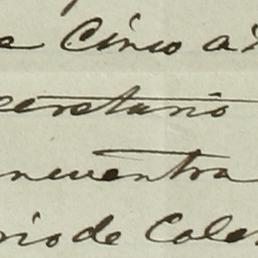 e Cinco a
cretario
ncuentra
rio de Cole